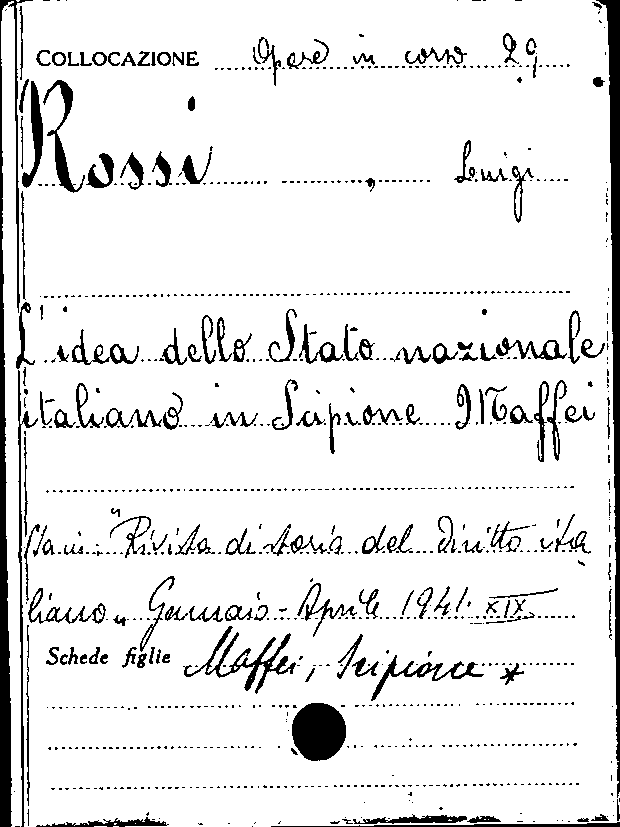 COLLOCAZIONE Opere in corso 29
Rossi , Luigi
L'idea dello Stato nazionale
italiano in Scipione Maffei
Sta in: "Rivista di storia del diritto ita
liano" Gennaio - Aprile 1941. XIX.
Schede figlie Maffei, Scipione *